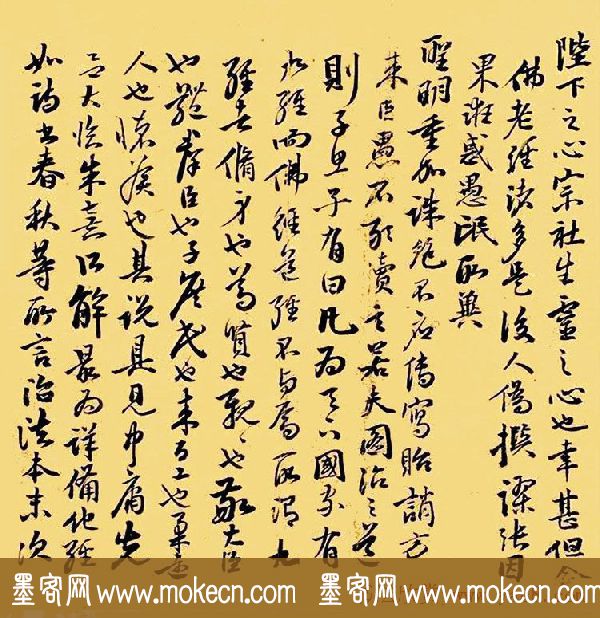 陛下之心宗社生靈之心也幸甚但念
佛老經諸多是後人偽撰謬張因
果誑惑愚氓所與
聖明重加誅絕不宜傳寫貽誚方
來臣愚不敢瀆言若夫國治之道
則子思子有曰凡為天下國家有
九經而佛經道經不與焉所謂九
經者脩身也尊賢也親〻也敬大臣
也體群臣也子庶民也來百工也柔遠
人也懷諸侯也其說具見中庸先
大臨朱熹所解最為詳備他經
如詩書春秋等所言治法本末次
墨客网 www.mokecn.com 墨客网 www.mokecn.com